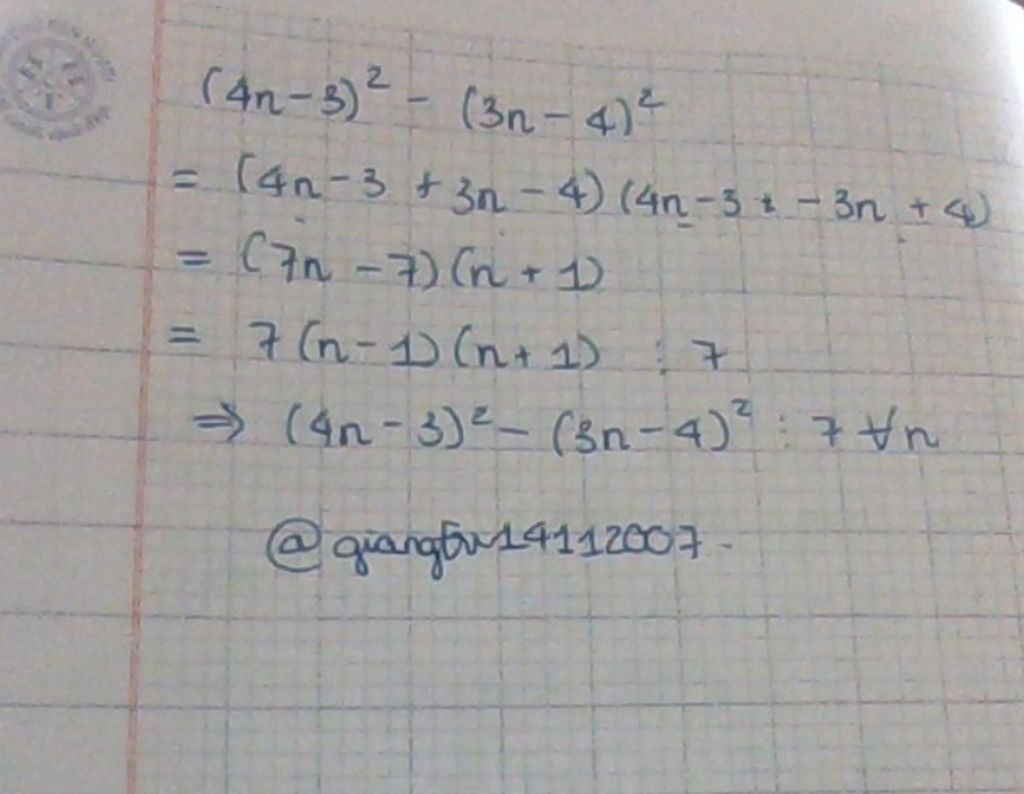 (4n-3)² - (3n-4)²
= (4n-3 + 3n-4)(4n-3 + -3n + 4)
= (7n-7)(n+1)
= 7(n-1)(n+1) ⋮ 7
⇒ (4n-3)² - (3n-4)² ⋮ 7 ∀n